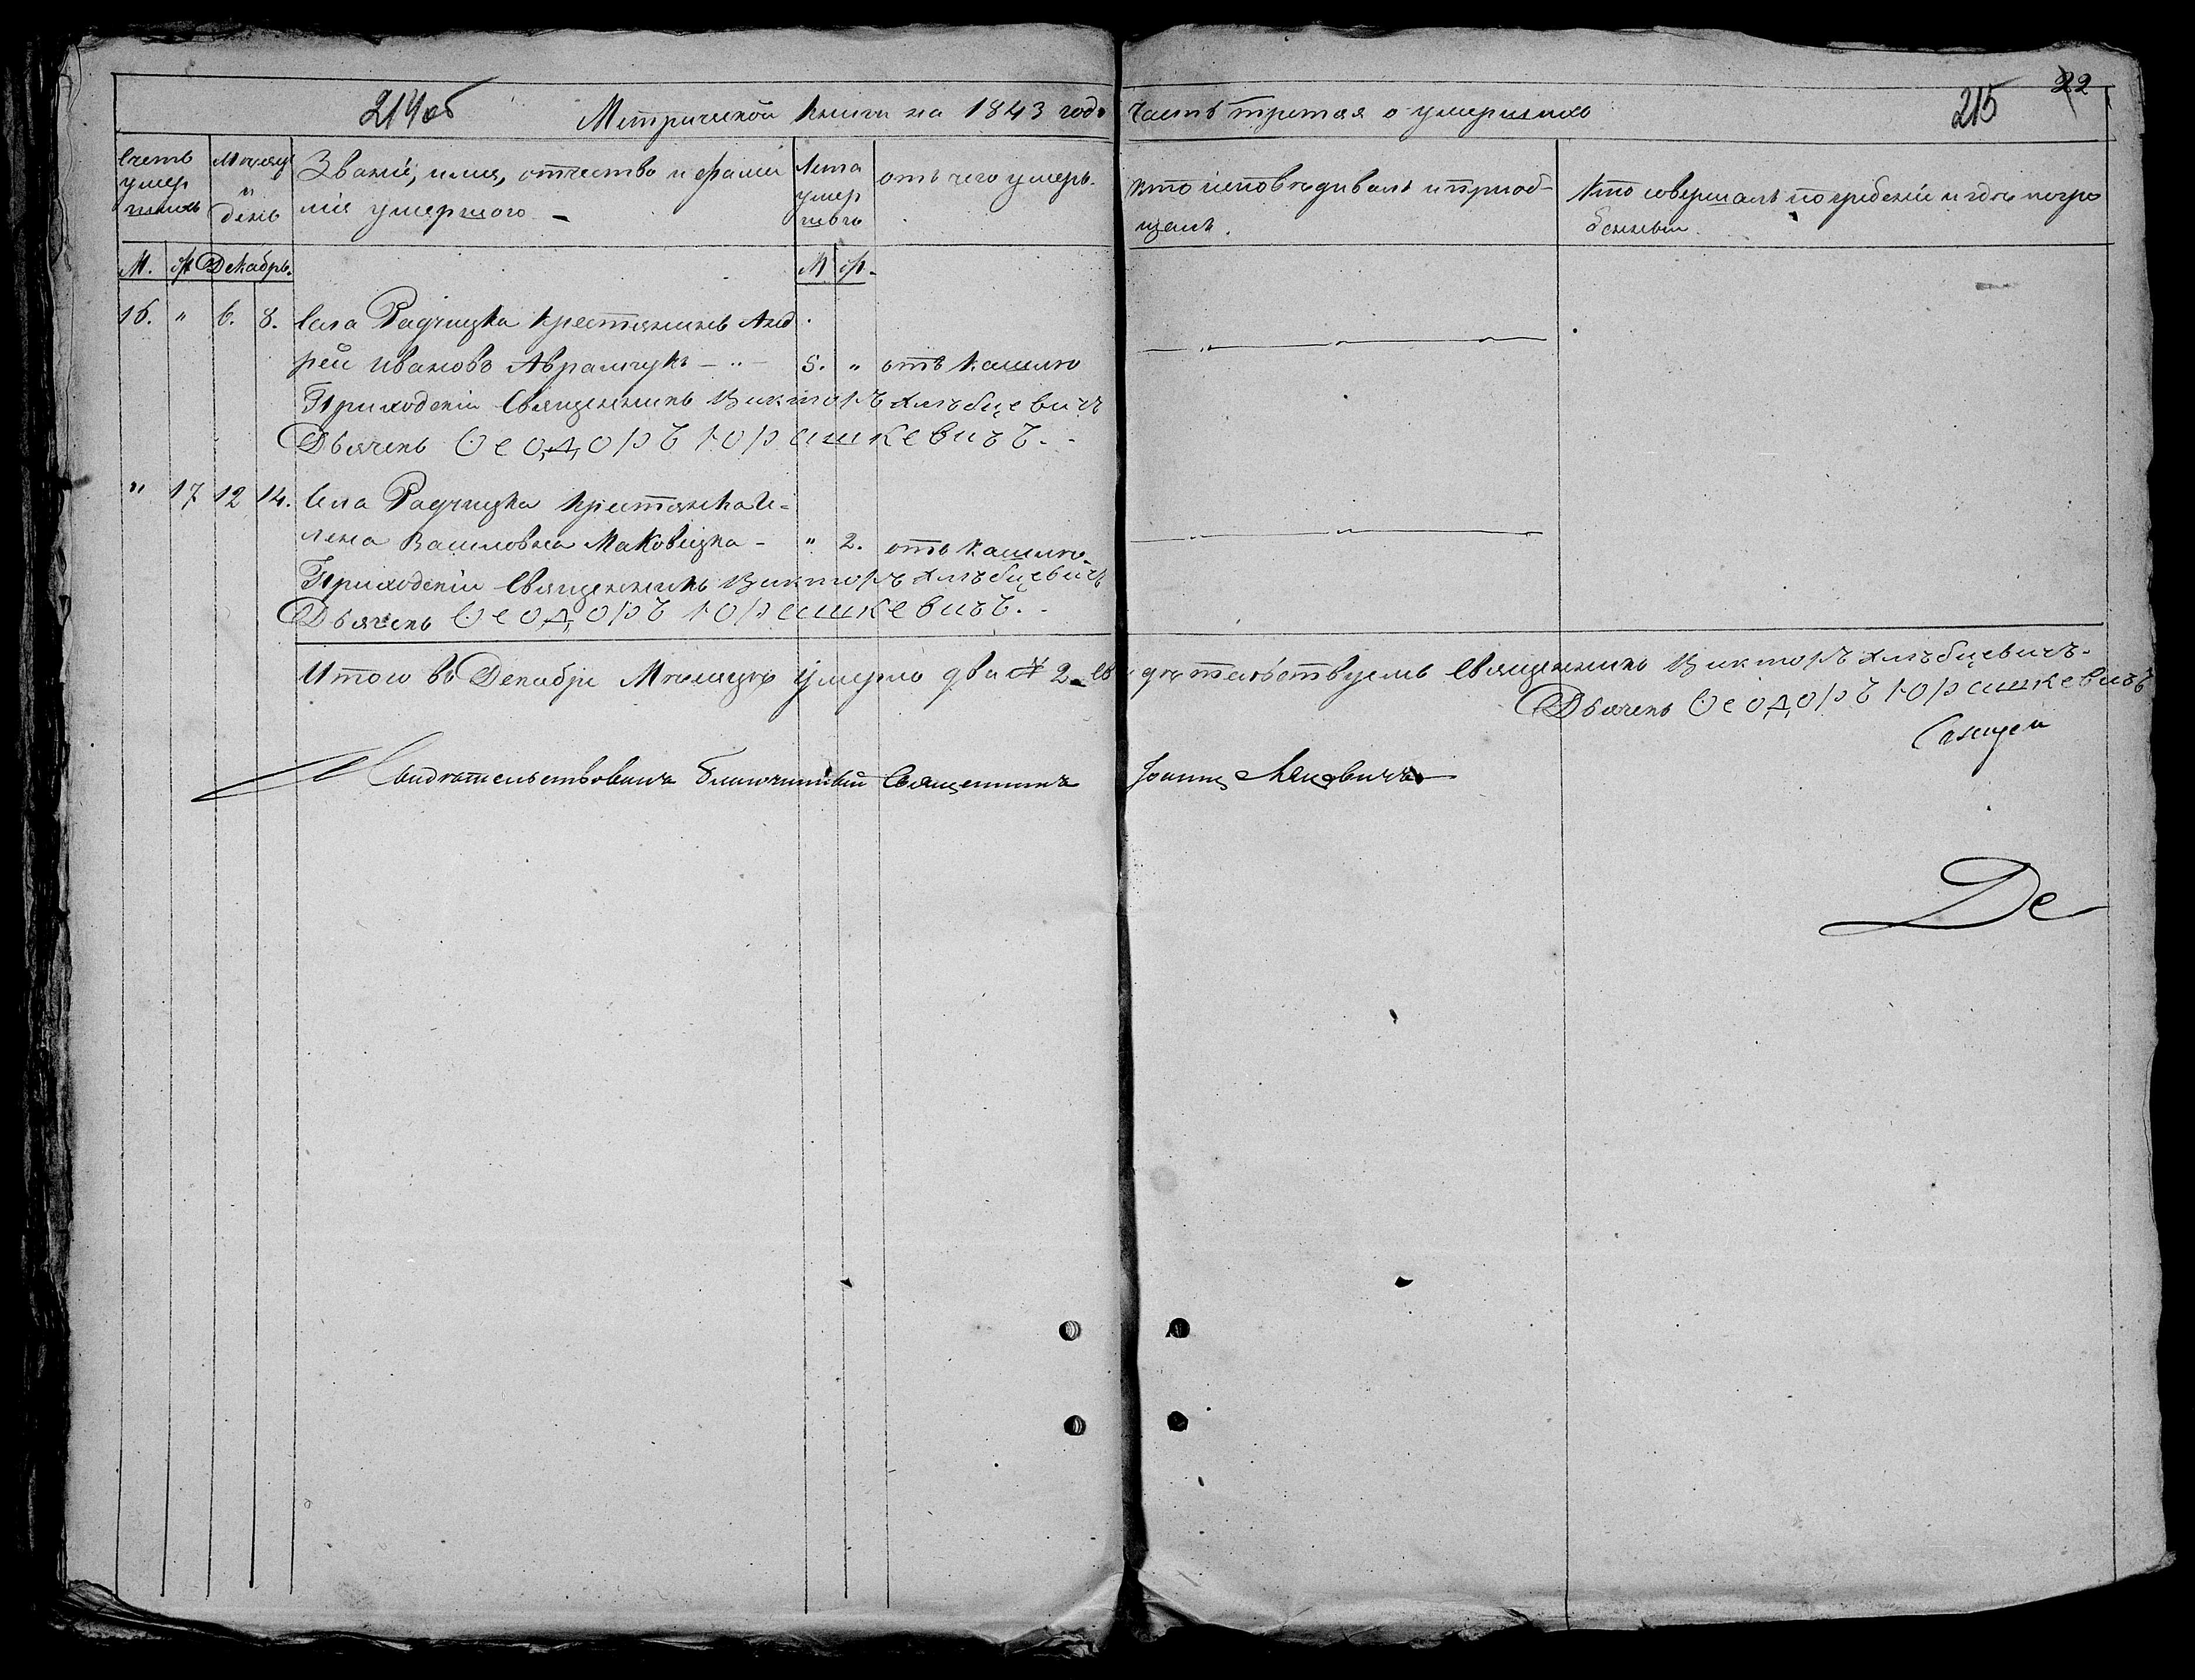 214об Метрической книги на 1843 годъ Часть третая о умершихъ 215 22
Счетъ умер шихъ
Месяцъ и день
Званіе, имя, отчество и фами лія умершого
Лета умер шого
отъ чего умеръ.
Кто исповедивалъ и приоб- щалъ.
Кто совершалъ погребеніе и где погре бенный.
М. Ф Декабрь. М Ф.
16. " 6. 8. Села Радчицка Крестянинъ Анд
рей Ивановъ Аврамчукъ 5. " отъ Кашлю
Приходскій Священникъ Викторъ Хлѣбцевичъ
Дьячекъ Ѳеодоръ Юрашкевичъ.
" 17 12 14. Села Радчицка Крестянка И-
лена Василовна Маковецка - " 2. отъ Кашлю
Приходскій Священникъ Викторъ Хлѣбцевичъ
Дьячекъ Ѳеодоръ Юрашкевичъ.
Итого въ Декабре Месяце умерло два № 2 Свидетельствуемъ Священникъ Викторъ Хлѣбцевичъ.
Дьячекъ Ѳеодоръ Юрашкевичъ
Свидѣтельствовалъ Благочинный Священникъ Іоаннъ
Де